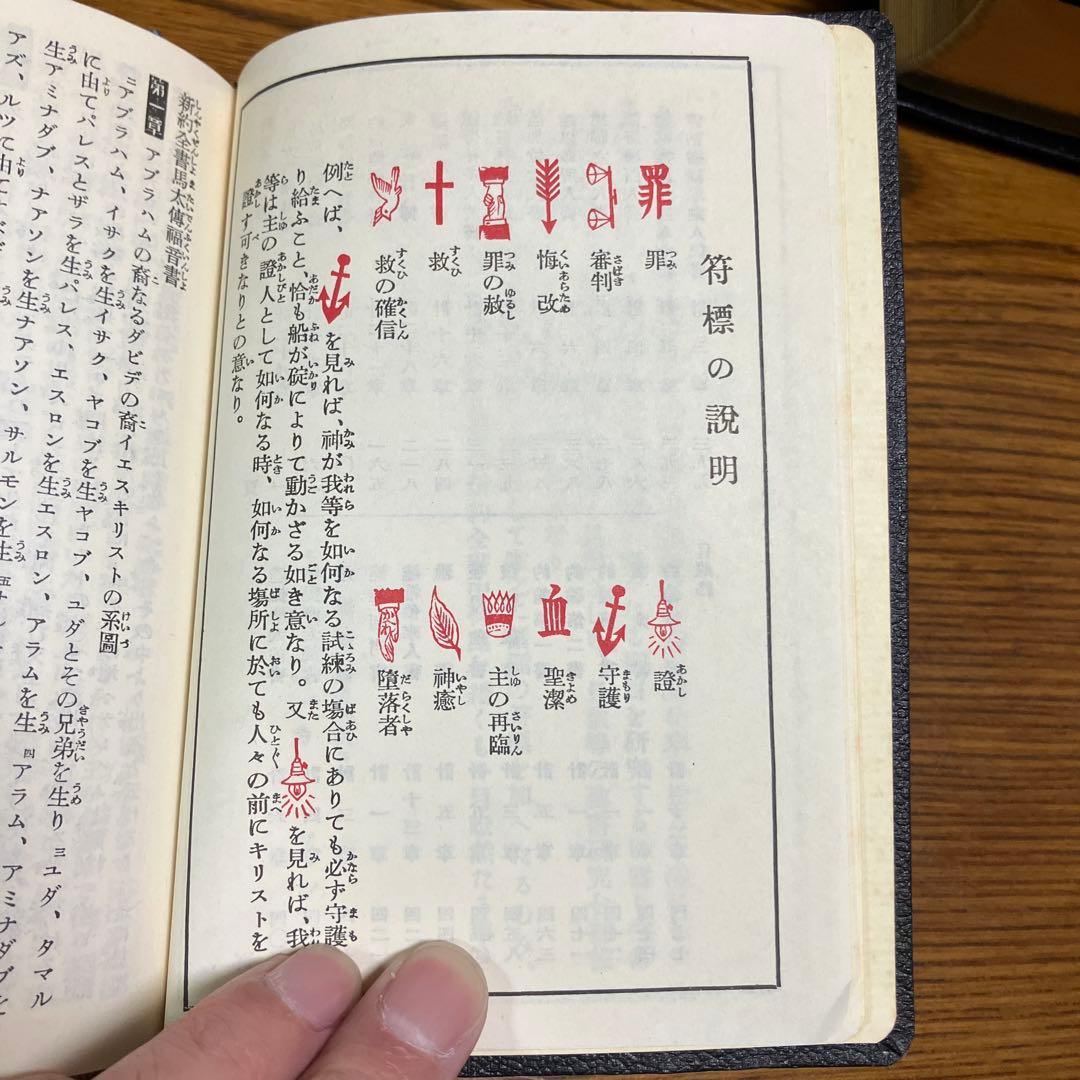 符標の說明
罪 罪
審判
悔改
罪の赦
救
救の確信
證
守護
血 聖潔
主の再臨
神癒
墮落者
例へば、を見れば、神が我等を如何なる試練の場合にありても必ず守護
り給ふこと、恰も船が碇によりて動かざる如き意なり。又を見れば、我
等は主の證人として如何なる時、如何なる場所に於ても人々の前にキリストを
證す可きなりとの意なり。
新約全書馬太傳福音書
第一章 アブラハムの裔なるダビデの裔イエスキリストの系圖
二アブラハム、イサクを生イサク、ヤコブを生ヤコブ、ユダとその兄弟を生り 三ユダ、タマル
に由てパレスとザラを生パレス、エスロンを生エスロン、アラムを生 四アラム、アミナダブを
生アミナダブ、ナアソンを生ナアソン、サルモンを生 五
アズ、ルツに由て